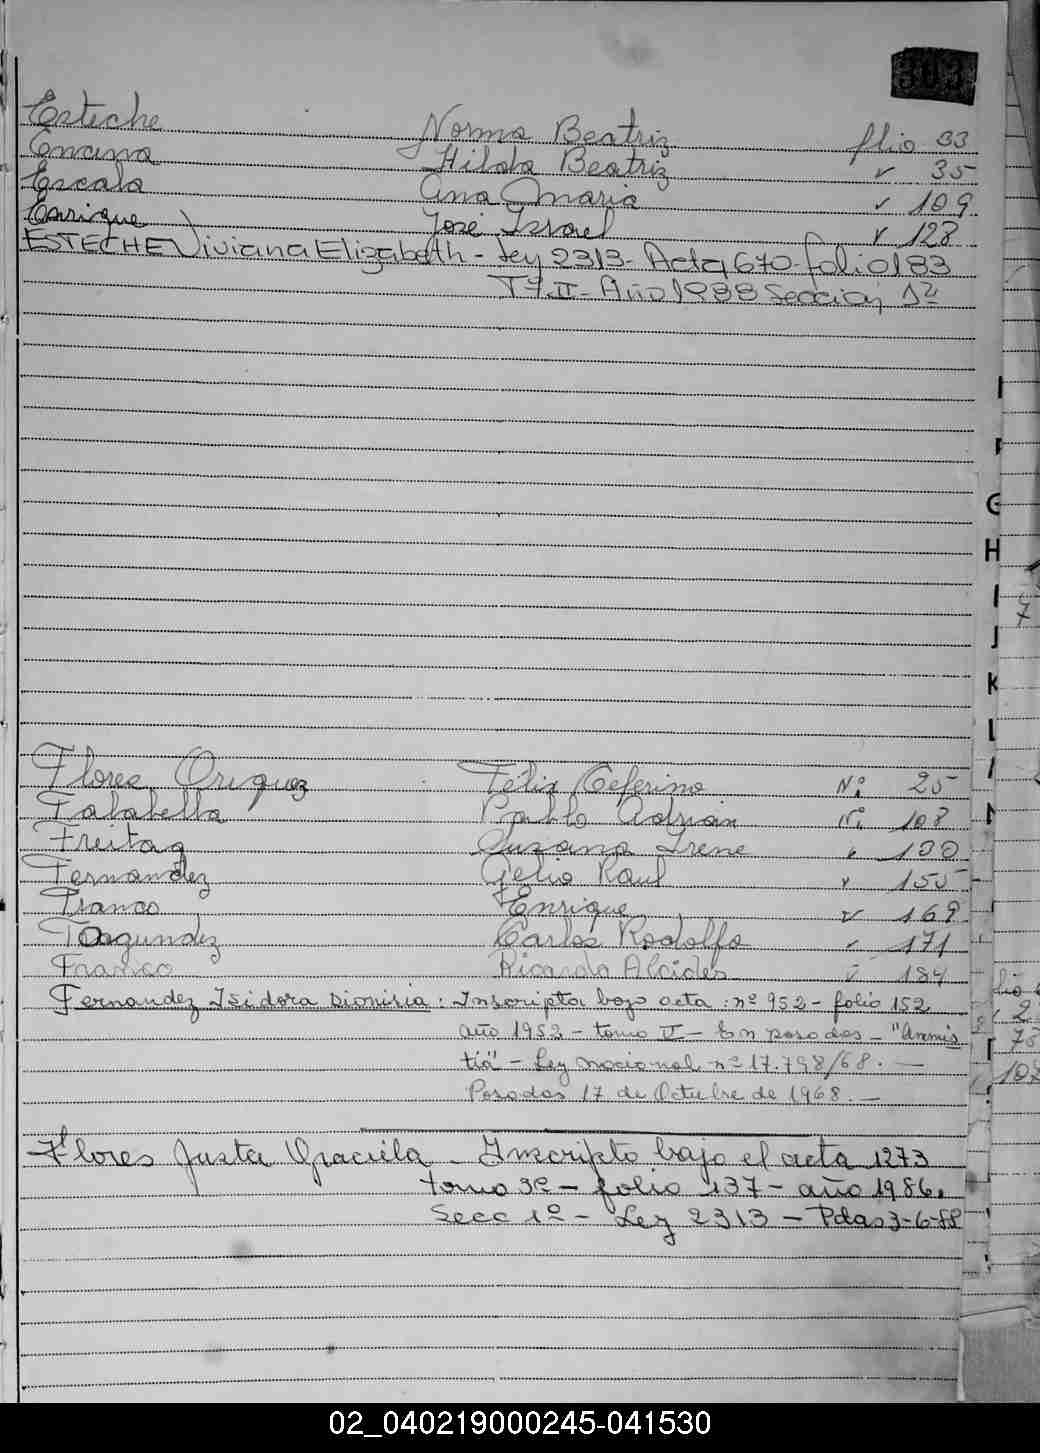 303
Esteche Norma Beatriz flio 33
Encina Hilda Beatriz " 35
Escala Ana Maria " 109
Enrique José Israel " 128
ESTECHE Viviana Elizabeth - Ley 2313 - Acta 670 - folio 183
Tº II - Año 1988 Sección 1ª
G
H
I
7
J
K
L
Flores Origuez Félix Ceferino Nº 25
Falabella Pablo Adrián Nº 108
Freitag Susana Irene " 130
Fernandez Celio Raul " 155
Franco Enrique " 169
Fagundez Carlos Rodolfo " 171
Franco Ricardo Alcides " 184
Fernandez Isidora Dionisia : Inscripta bajo acta : nº 952 - folio 152
año 1952 - tomo II - En posadas - "Amnis
tia" - Ley nacional nº 17.798/68. —
Posadas 17 de Octubre de 1968. —
Flores Justa Graciela - Inscripto bajo el acta 1273
tomo 3º - folio 137 - año 1986.
Secc 1º - Ley 2313 - Pdas 3-6-88
02_040219000245-041530